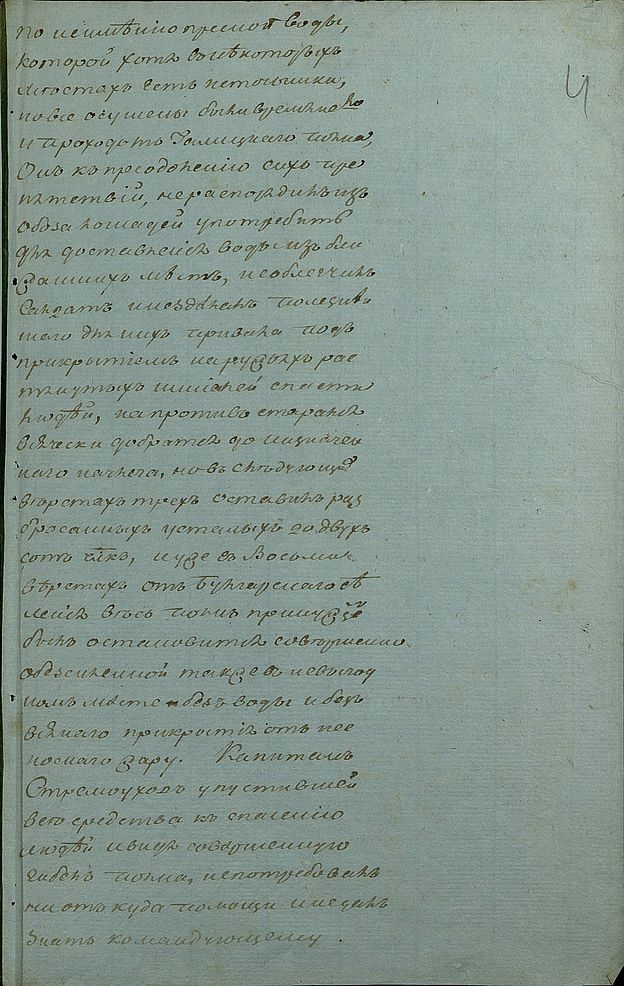 4
по неимѣнію пресной воды,
которой хотя въ нѣкоторыхъ
мѣстахъ есть источники,
но все осушены были временно
и проходомъ Галицкаго полка,
Онъ къ преодоленію сихъ пре
пятствій, не распорядилъ изъ
обоза лошадей употребить
для доставленія воды изъ бли
жашихъ мѣстъ, не облегчилъ
Солдатъ и не сдѣлалъ полезнѣй
шаго для нихъ привала подъ
прикрытіемъ на ружьяхъ рас
тянутыхъ шинелей спасти
людѣй, на противъ старался
всячески добратся до назначен
наго ночлега, но въ слѣдующихъ
верстахъ трехъ оставилъ раз
бросанныхъ усталыхъ до двухъ
сотъ члкъ, и уже въ Восьми
вѣрстахъ отъ Булгарскаго сѣ
ленія весь полкъ принужденъ
былъ остановится совершенно
обезсиленной также въ невыгод
номъ мѣсте безъ воды и безъ
всякаго прикрытія отъ нес
носнаго жару. Капитанъ
Стремоуховъ упустившей
все средства къ спасенію
людѣй и видя совершенную
гибель полка, не потребовалъ
ни отъ куда помощи и не далъ
знать командующему